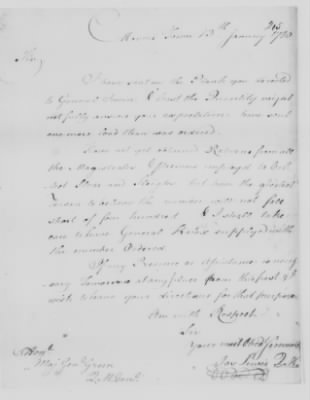 Morris Town 13th January 1780
Sir
I have sent on the Plank you directed
to General Irvin, & lest the Quantity might
not fully answer your expectations have sent
one more load than was ordered.
have not yet obtained Returns from all
the Magistrates & Persons employed to
Sleds and Sleighs but have the greatest
reason to believe the number will not fall
short of four hundred & I shall take
care to have General supplyed with
the number Ordered.
If any Provision or Assistance is neces
sary Tomorrow at any place from this
wish to have your directions for that purpose
Am with Respect
Sir
Your most Obed Servant
Jos Lewis QM
Honble
Maj Genl Green
Q M Genl